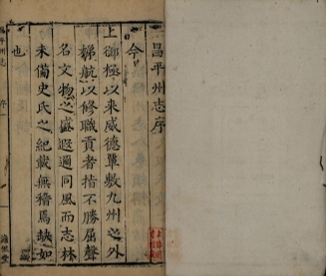 昌平州志序
今
上御極以来威德覃敷九州之外
梯航以修職貢者指不勝屈聲
名文物之盛遐邇同風而志林
未備史氏之紀載無稽焉缺如
也